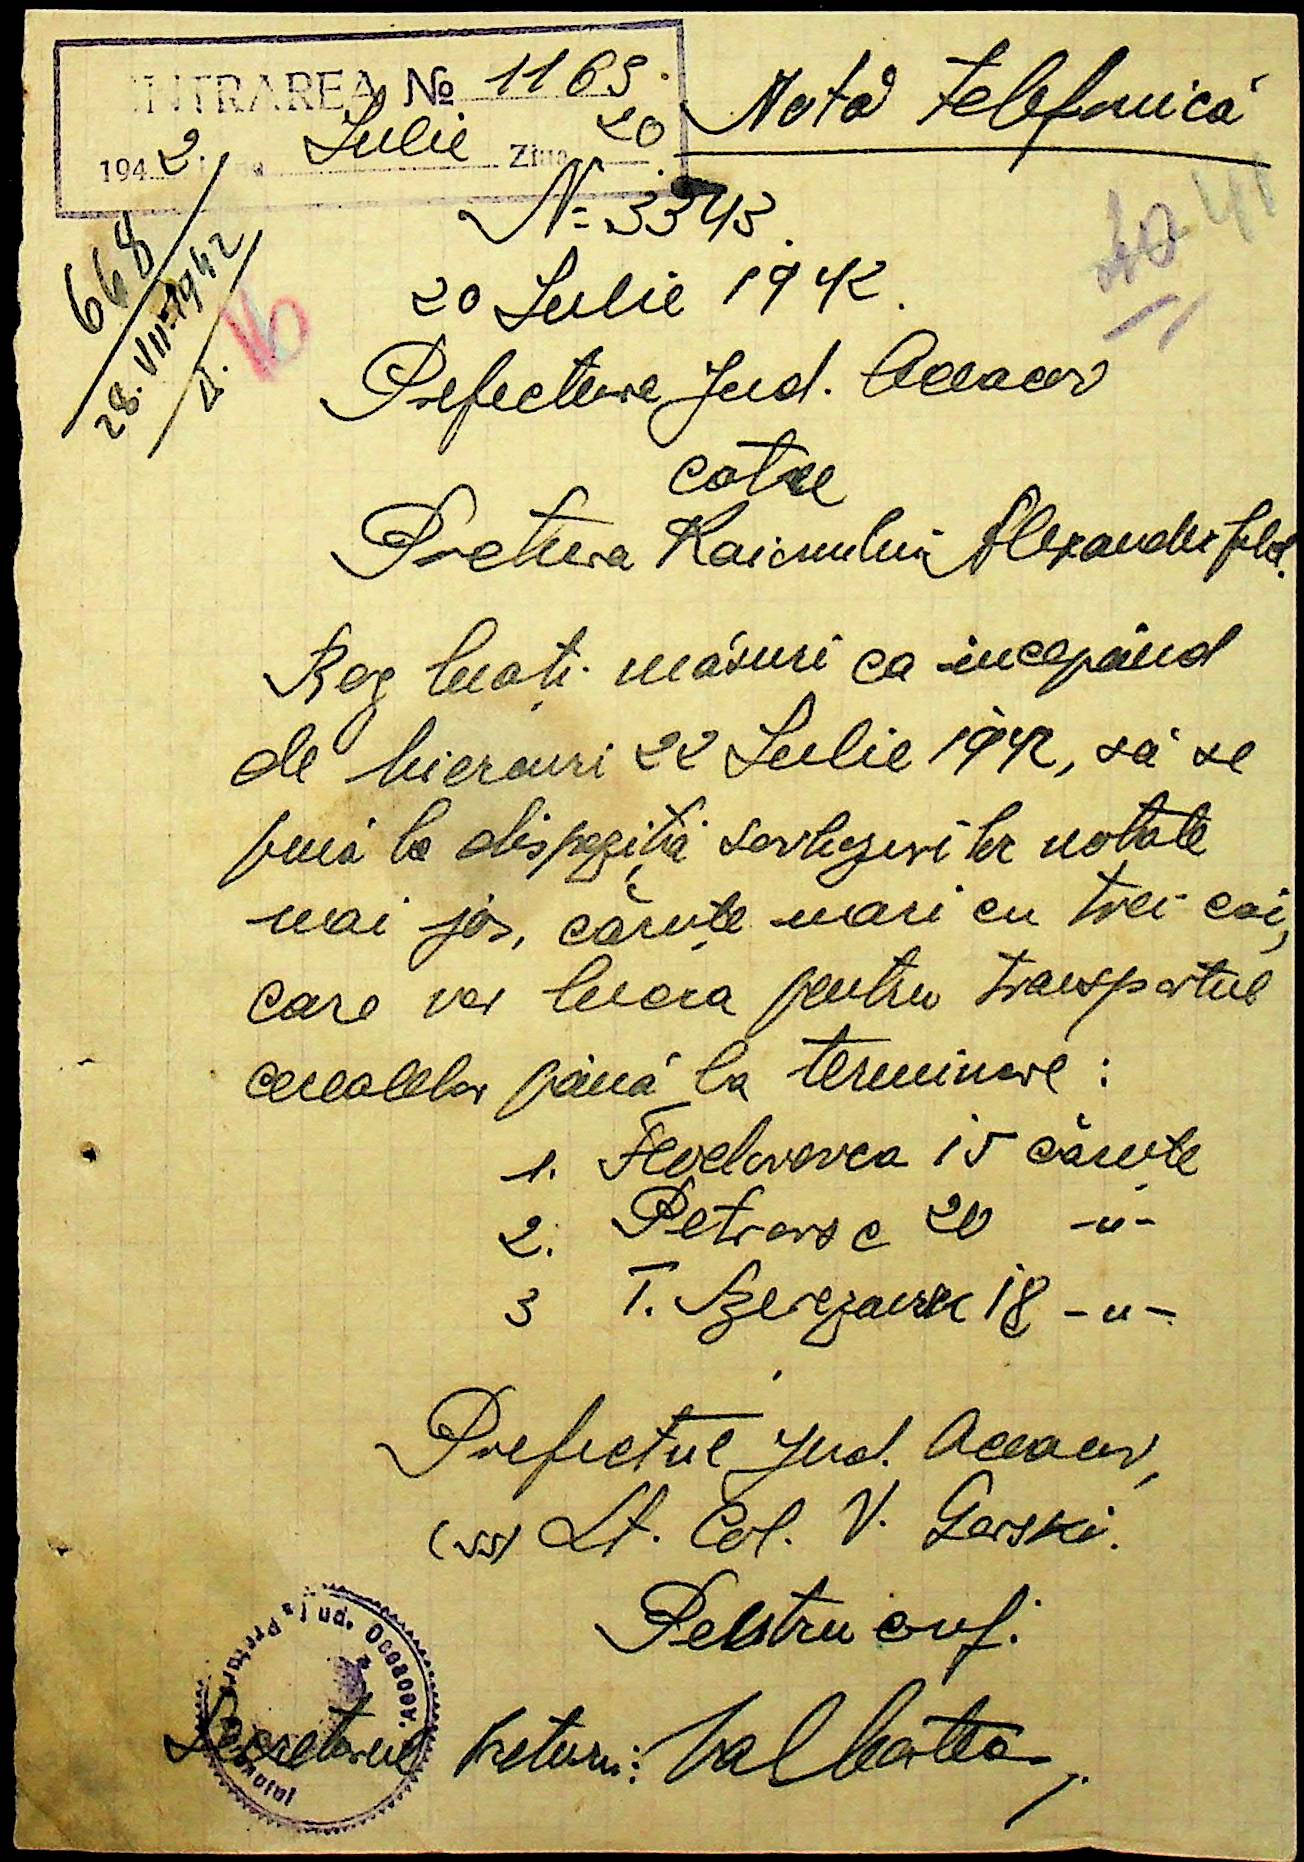 INTRAREA № 1165.
1942 Iulie Ziua 20
Notă telefonică
N= 3343.
40 41
668
28.VII.1942
20 Iulie 1942.
Prefectura Jud. Oceacov
cotre
Pretura Raionului Alexanderfeld.
Rog luați măsuri ca începând
de miercuri 22 Iulie 1942, să se
pună la dispoziția sovhozurilor notate
mai jos, căruțe mari cu trei cai,
care vor lucra pentru transportul
cerealelor până la terminare:
1. Feodorovca 15 căruțe
2. Petrovsc 20 -"-
3 T. 18 -"-
Prefectul Jud. Oceacov,
(ss) Lt. Col. V. Gorski.
Pentru conf.
Secretarul Preturi:
Pretura jud. Oceacov.